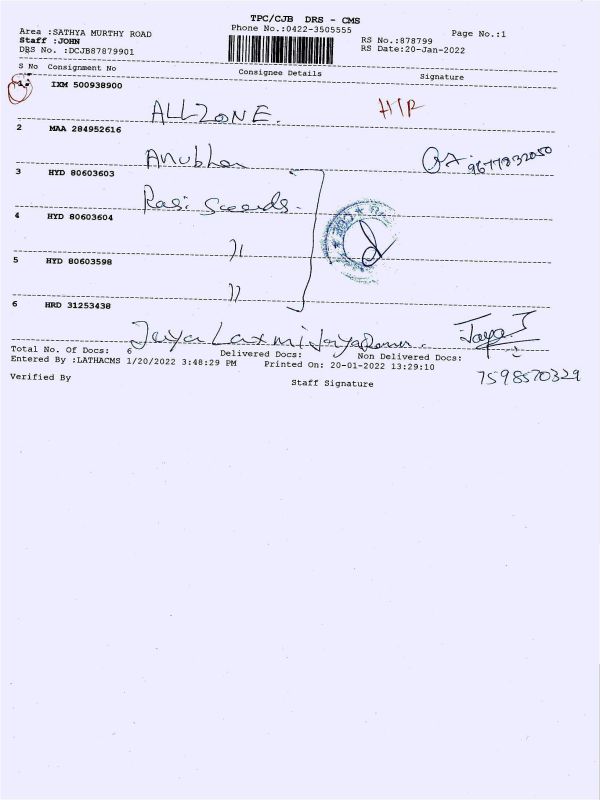 TPC/CJB DRS - CMS
Area :SATHYA MURTHY ROAD Phone No.:0422-3505555 Page No.:1
Staff :JOHN RS No.:878799
DRS No. :DCJB87879901 RS Date:20-Jan-2022
S No Consignment No Consignee Details Signature
1 IXM 500938900
ALLZONE.
2 MAA 284952616
Anubhav 9677832050
3 HYD 80603603
Rasi Seeds.
4 HYD 80603604
"
5 HYD 80603598
"
6 HRD 31253438
Jeya Laxmi
Total No. Of Docs: 6 Delivered Docs: Non Delivered Docs:
Entered By :LATHACMS 1/20/2022 3:48:29 PM Printed On: 20-01-2022 13:29:10
Verified By Staff Signature 7598570329